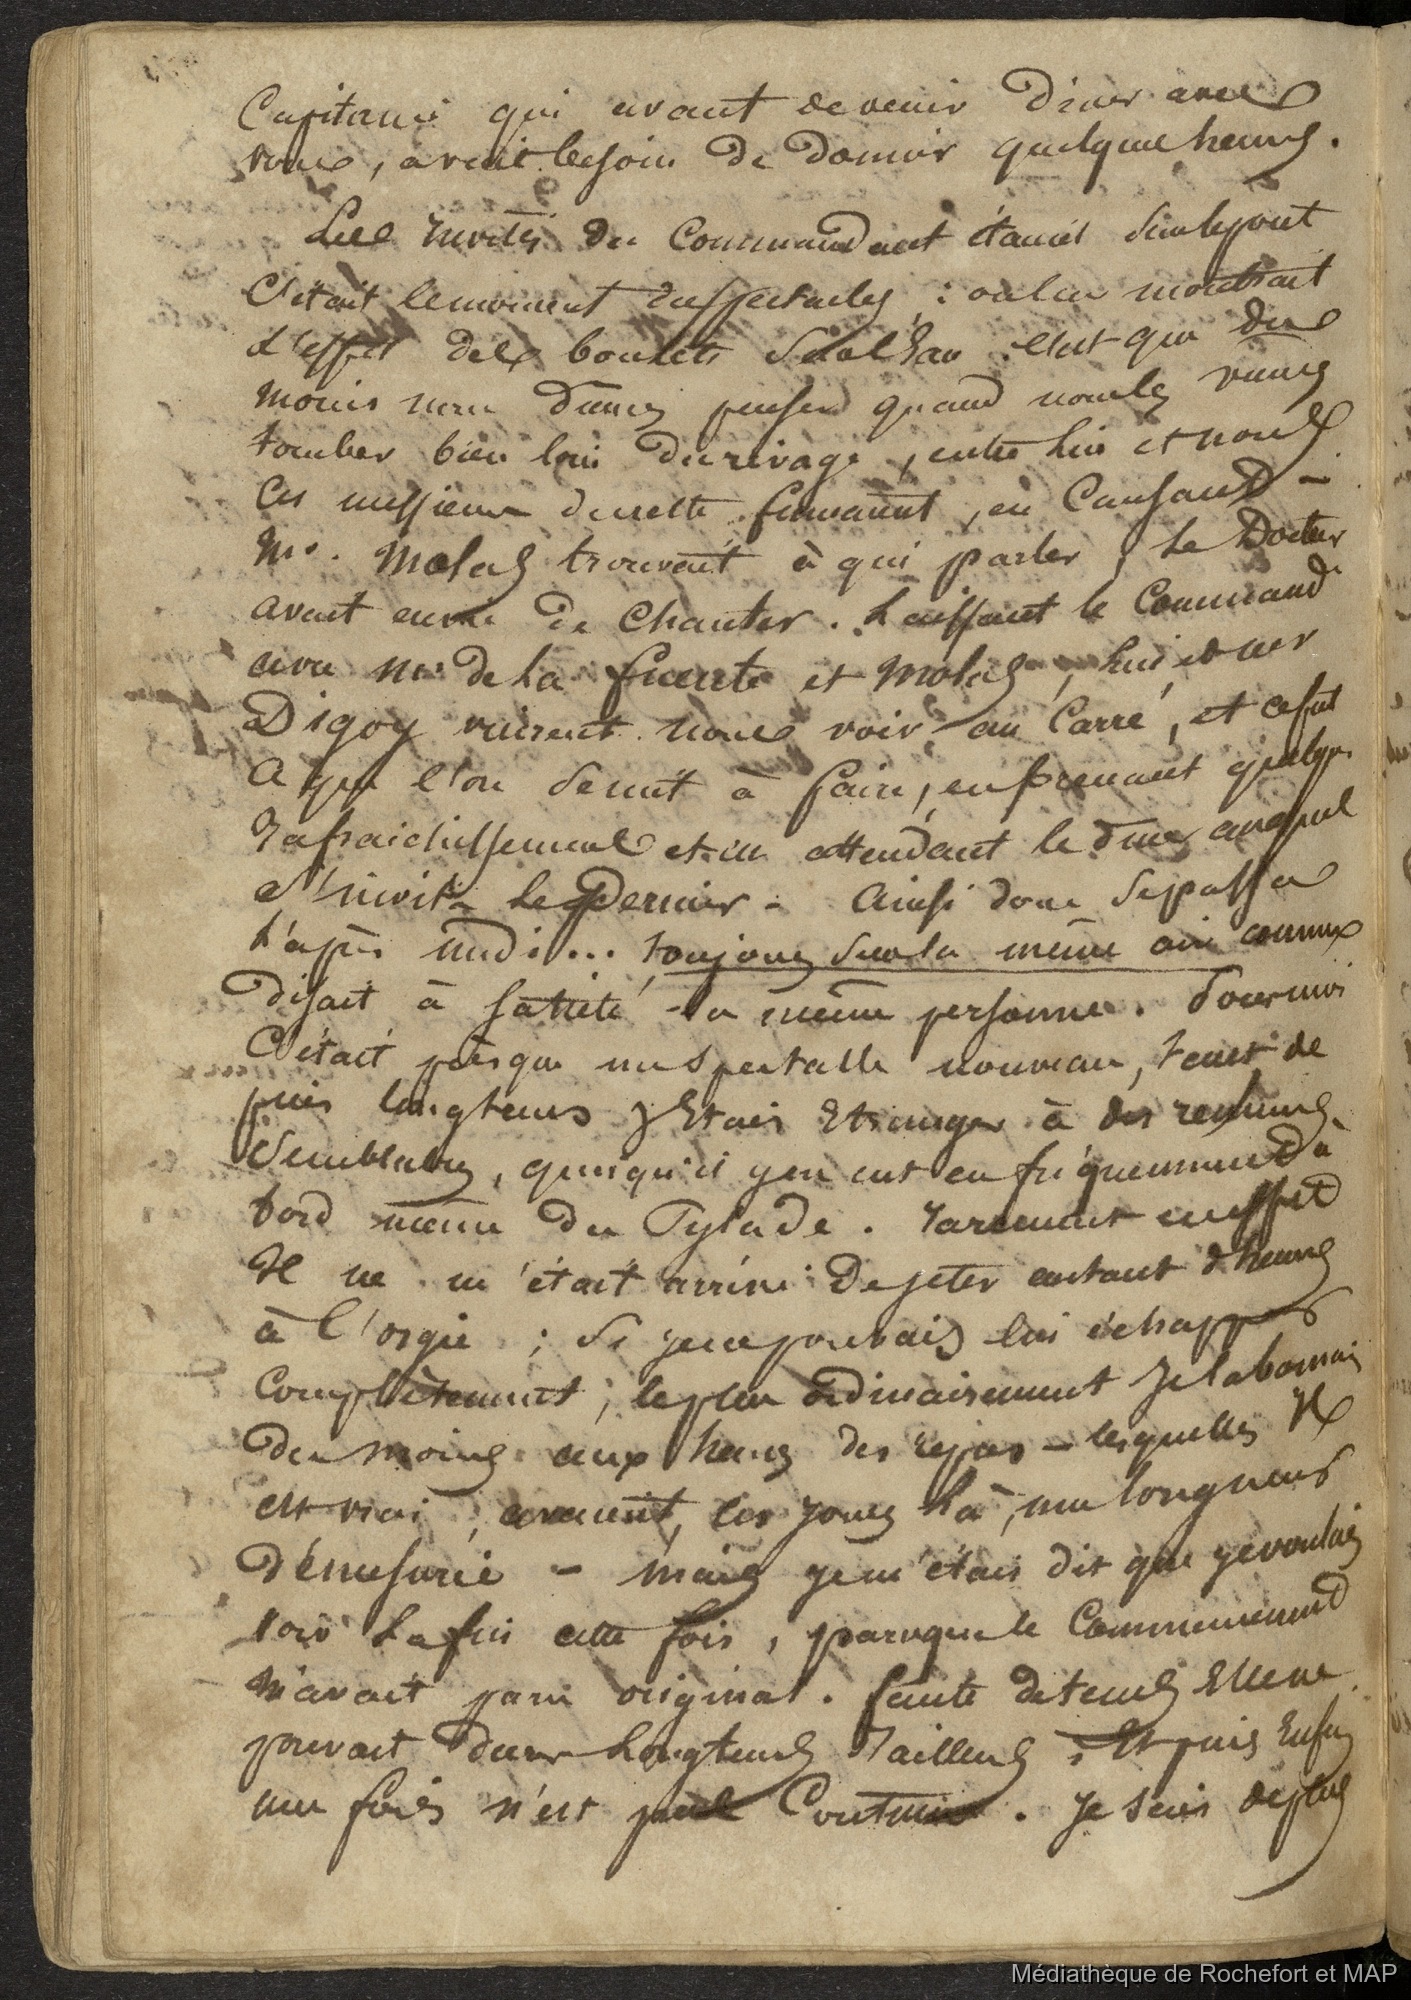 Capitaine qui avant de venir diner avec
nous, avait besoin de dormir quelque heures.
Les invités du Commandant étaient sur le pont
C'était le moment du spectacle : on leur montrait
l'effet des boulets sur l'Eau c'est que du
moins nous dumes penser quand nous les vimes
tomber bien loin du rivage, entre lui et nous
Ces messieurs du reste fumaient, en Causant -
Mr. Molas trouvant à qui parler, le Docteur
avait envie de Chanter. Laissant le Command
avec Mr. de la fuente et Molas, lui et mer
Digoy vinrent nous voir au Carré, et ce fut
a qui l'on serait à faire, en prenant quelqs
rafraichissement et en attendant le diner auquel
s'invita le Dernier - Ainsi donc se passa
l'après midi... toujours sur le même air comme
disait à satiété la même personne. Pour moi
C'était presque un spectacle nouveau, tant de
puis longtems J'Etais Etranger à des reunions
Semblables, quoiqu'il y en eut eu fréquemment à
bord même du Pylade. rarement en effet
Il ne m'était arrivé de jeter autant d'heures
à l'orgie ; si je ne pouvais lui échapper
Complètement, le plus ordinairement Je la bornais
du moins aux heures des repas - lesquelles Il
est vrai, avaient, ces jours là, une longueur
démesurée - mais je m'étais dit que je voulais
voir la fin cette fois, parceque le Commencement
m'avait paru original. faute de tems Elle ne
pouvait durer longtems d'ailleurs, Et puis Enfin
une fois n'est pas Coutume. Je suis de plus
Médiathèque de Rochefort et MAP